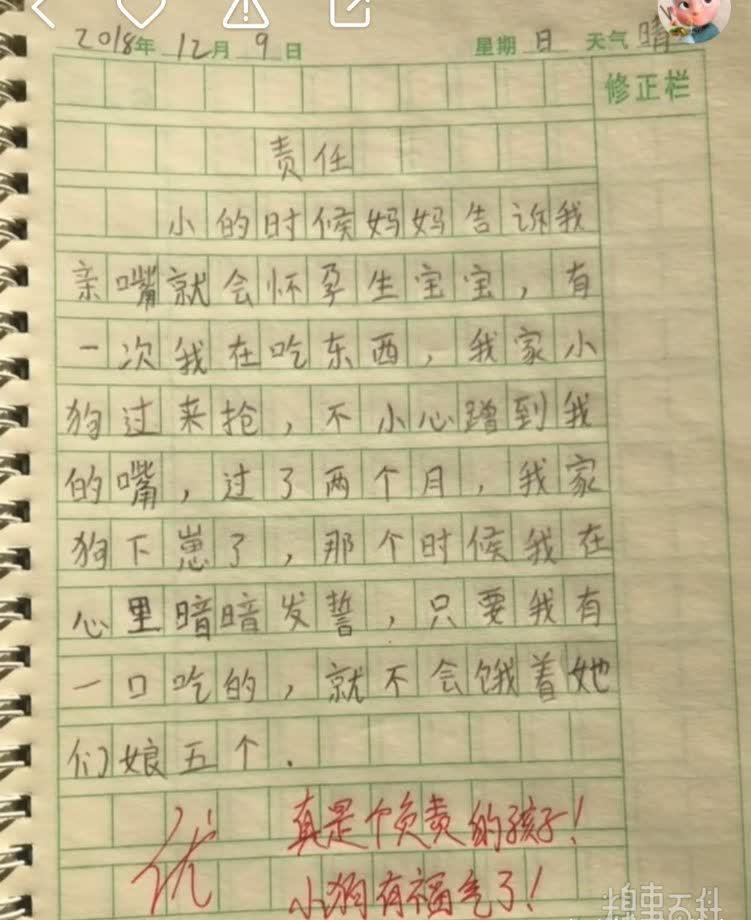 2018年 12月 9日 星期 日 天气 晴
修正栏
责任
小的时候妈妈告诉我
亲嘴就会怀孕生宝宝，有
一次我在吃东西，我家小
狗过来抢，不小心蹭到我
的嘴，过了两个月，我家
狗下崽了，那个时候我在
心里暗暗发誓，只要我有
一口吃的，就不会饿着她
们娘五个.
优
真是个负责的孩子！
小狗有福气了！
糗事百科